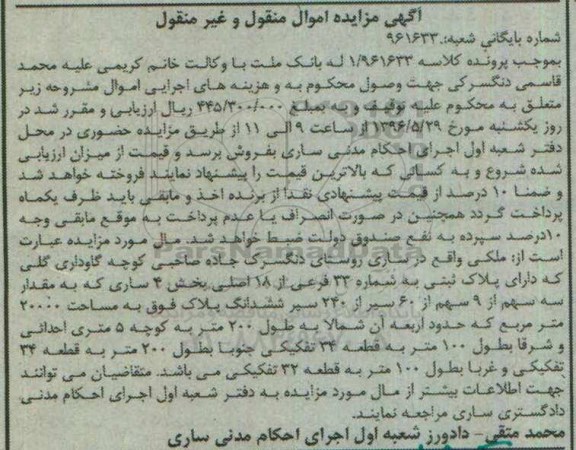 آگهی مزایده اموال منقول و غیر منقول
شماره بایگانی شعبه: ۹۶۱۶۳۳
بموجب پرونده کلاسه ۱/۹۶۱۶۳۳ له بانک ملت با وکالت خانم کریمی علیه محمد
قاسمی دنگسرکی جهت وصول محکوم به و هزینه های اجرایی اموال مشروحه زیر
متعلق به محکوم علیه توقیف و به بمبلغ ۴۴۵/۳۰۰/۰۰۰ ریال ارزیابی و مقرر شد در
روز یکشنبه مورخ ۱۳۹۶/۵/۲۹ از ساعت ۹ الی ۱۱ از طریق مزایده حضوری در محل
دفتر شعبه اول اجرای احکام مدنی ساری بفروش برسد و قیمت از میزان ارزیابی
شده شروع و به کسانی که بالاترین قیمت را پیشنهاد نمایند فروخته خواهد شد
و ضمنا ۱۰ درصد از قیمت پیشنهادی نقدا از برنده اخذ و مابقی باید ظرف یکماه
پرداخت گردد همچنین در صورت انصراف یا عدم پرداخت به موقع مابقی وجه
۱۰درصد سپرده به نفع صندوق دولت ضبط خواهد شد. مال مورد مزایده عبارت
است از: ملکی واقع در ساری روستای دنگسرک جاده صاحبی کوچه گاوداری گلی
که دارای پلاک ثبتی به شماره ۳۳ فرعی از ۱۸ اصلی بخش ۴ ساری که به مقدار
سه سهم از ۹ سهم از ۶۰ سیر از ۲۴۰ سیر ششدانگ پلاک فوق به مساحت ۲۰۰۰۰
متر مربع که حدود اربعه آن شمالا به طول ۲۰۰ متر به کوچه ۵ متری احداثی
و شرقا بطول ۱۰۰ متر به قطعه ۳۴ تفکیکی جنوبا بطول ۲۰۰ متر به قطعه ۳۴
تفکیکی و غربا بطول ۱۰۰ متر به قطعه ۳۲ تفکیکی می باشد. متقاضیان می توانند
جهت اطلاعات بیشتر از مال مورد مزایده به دفتر شعبه اول اجرای احکام مدنی
دادگستری ساری مراجعه نمایند.
محمد متقی- دادورز شعبه اول اجرای احکام مدنی ساری